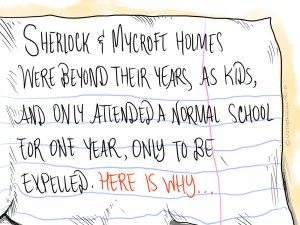 SHERLOCK & MYCROFT HOLMES
WERE BEYOND THEIR YEARS, AS KIDS,
AND ONLY ATTENDED A NORMAL SCHOOL
FOR ONE YEAR, ONLY TO BE
EXPELLED. HERE IS WHY...